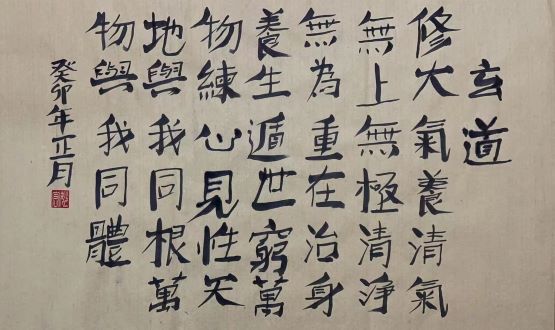 玄道
修大氣養清氣
無上無極清淨
無為重在治身
養生遁世窮萬
物練心見性天
地與我同根萬
物與我同體
癸卯年正月